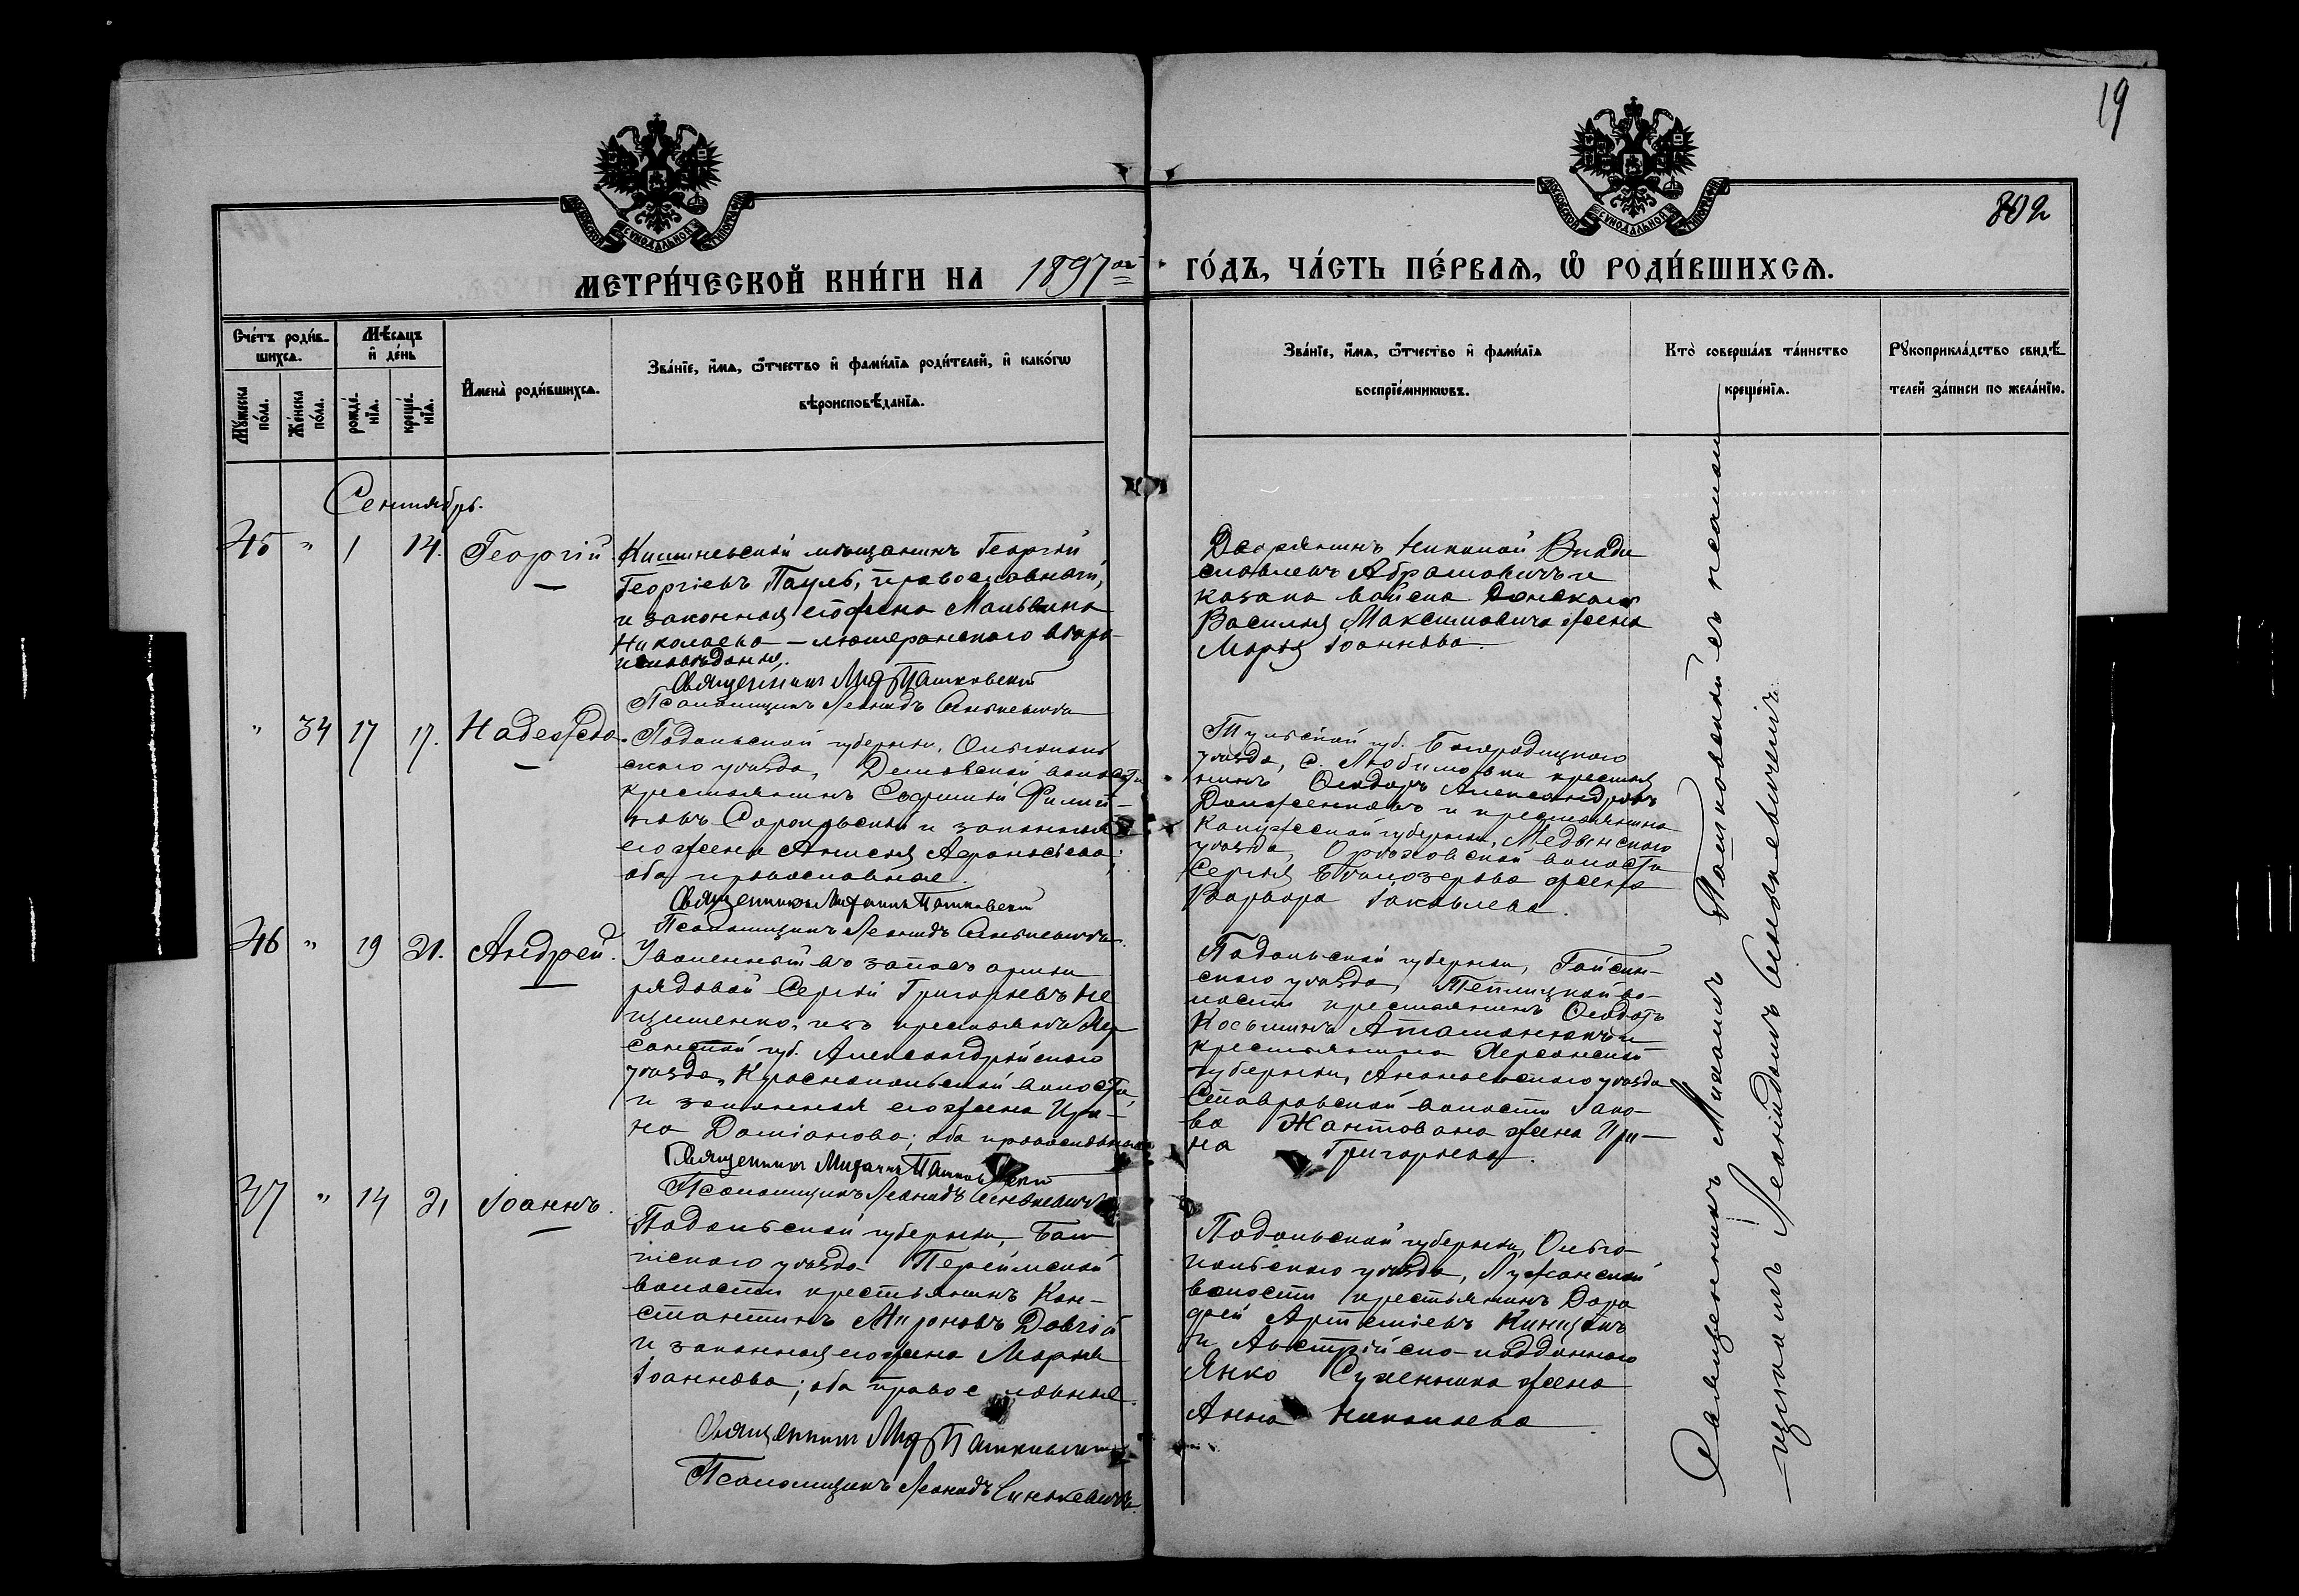 19
802
МОСКОВСКОЙ СѴНОДАЛЬНОЙ ТИПОГРАФІИ
МОСКОВСКОЙ СѴНОДАЛЬНОЙ ТИПОГРАФІИ
МЕТРИ́ЧЕСКОЙ КНИ́ГИ НА 1897ой ГО́ДЪ, ЧА́СТЬ ПЕ́РВАѦ, Ѽ РОДИ́ВШИХСѦ.
Сче́тъ роди́в-
шихсѧ.
Мꙋ́жеска по́ла.
Же́нска по́ла.
Мѣ́сѧцъ
и҆ де́нь
рожде́-
нїѧ.
креще́-
нїѧ.
И҆мена̀ роди́вшихсѧ.
Зва́нїе, и҆́мѧ, ѻ҆́тчество и҆ фами́лїѧ роди́телей, и҆ како́гѡ
вѣроисповѣ́данїѧ.
Зва́нїе, и҆́мѧ, ѻ҆́тчество и҆ фами́лїѧ
воспрїе́мникѡвъ.
Кто̀ соверша́лъ та́инство
креще́нїѧ.
Рꙋкоприкла́дство свидѣ́-
телей за́писи по жела́нїю.
Сентябрь.
45 " 1 14. Георгій.
Кишиневскій мѣщанинъ Георгій
Георгіевъ Пауль, православный,
и законная его жена Мальвина
Николаева — лютеранского вѣро-
исповѣданія.
Священникъ Мих Пашковскій
Псаломщикъ Леонидъ Синькевичъ
Дворянинъ Николай Влади
славлевъ Абрамовичъ и
казака войска Донскаго
Василія Максимовича жена
Марья Іоаннова.
" 34 17 17. Надежда.
Подольской губерніи, Ольгополь
скаго уѣзда, Демовской волости
крестьянинъ Софроній Филип-
повъ и законная
его жена Анисія Аѳанасіева;
оба православные.
Священникъ Михаилъ Пашковскій
Псаломщикъ Леонидъ Синькевичъ.
Тульской губ. Богородицкого
уѣзда, с. Любимовки крестья
нинъ Ѳеодоръ Александровъ
и крестьянина
Калужской губерніи, Медынского
уѣзда, волости
Сергія Бѣлозерова жена
Варвара Іаковлева.
46 " 19 21. Андрей.
Уволенный въ запасъ арміи
рядовой Сергій Григорьевъ Не
щименко, изъ крестьянъ Хер
сонской губ. Александрійскаго
уѣзда, Краснопольской волости,
и законная его жена Ири-
на Даміанова; оба православные
Священникъ Михаилъ Пашковскій
Псаломщикъ Леонидъ Синькевичъ
Подольской губерніи, Гайсин-
скаго уѣзда, Теплицкой во-
лости крестьянинъ Ѳеодотъ
Косьминъ Атаманюкъ и
крестьянина Херсонской
губерніи, Ананьевскаго уѣзда
Ставровской волости Іако-
ва Жантована жена Ири-
на Григорьева.
47 " 14 21 Іоаннъ.
Подольской губерніи, Бал
тскаго уѣзда Переймской
волости крестьянинъ Кон-
стантинъ Мироновъ Довгій
и законная его жена Марія
Іоаннова; оба православные.
Священникъ Мих Пашковскій
Псаломщикъ Леонидъ Синькевичъ
Подольской губерніи, Ольго-
польскаго уѣзда, Лужанской
волости крестьянинъ Доро
фей Артеміевъ
и Австрійско-подданного
Янко жена
Анна Николаева.
Священникъ Михаилъ Пашковскій съ псалом
щикомъ Леонидомъ Синькевичемъ